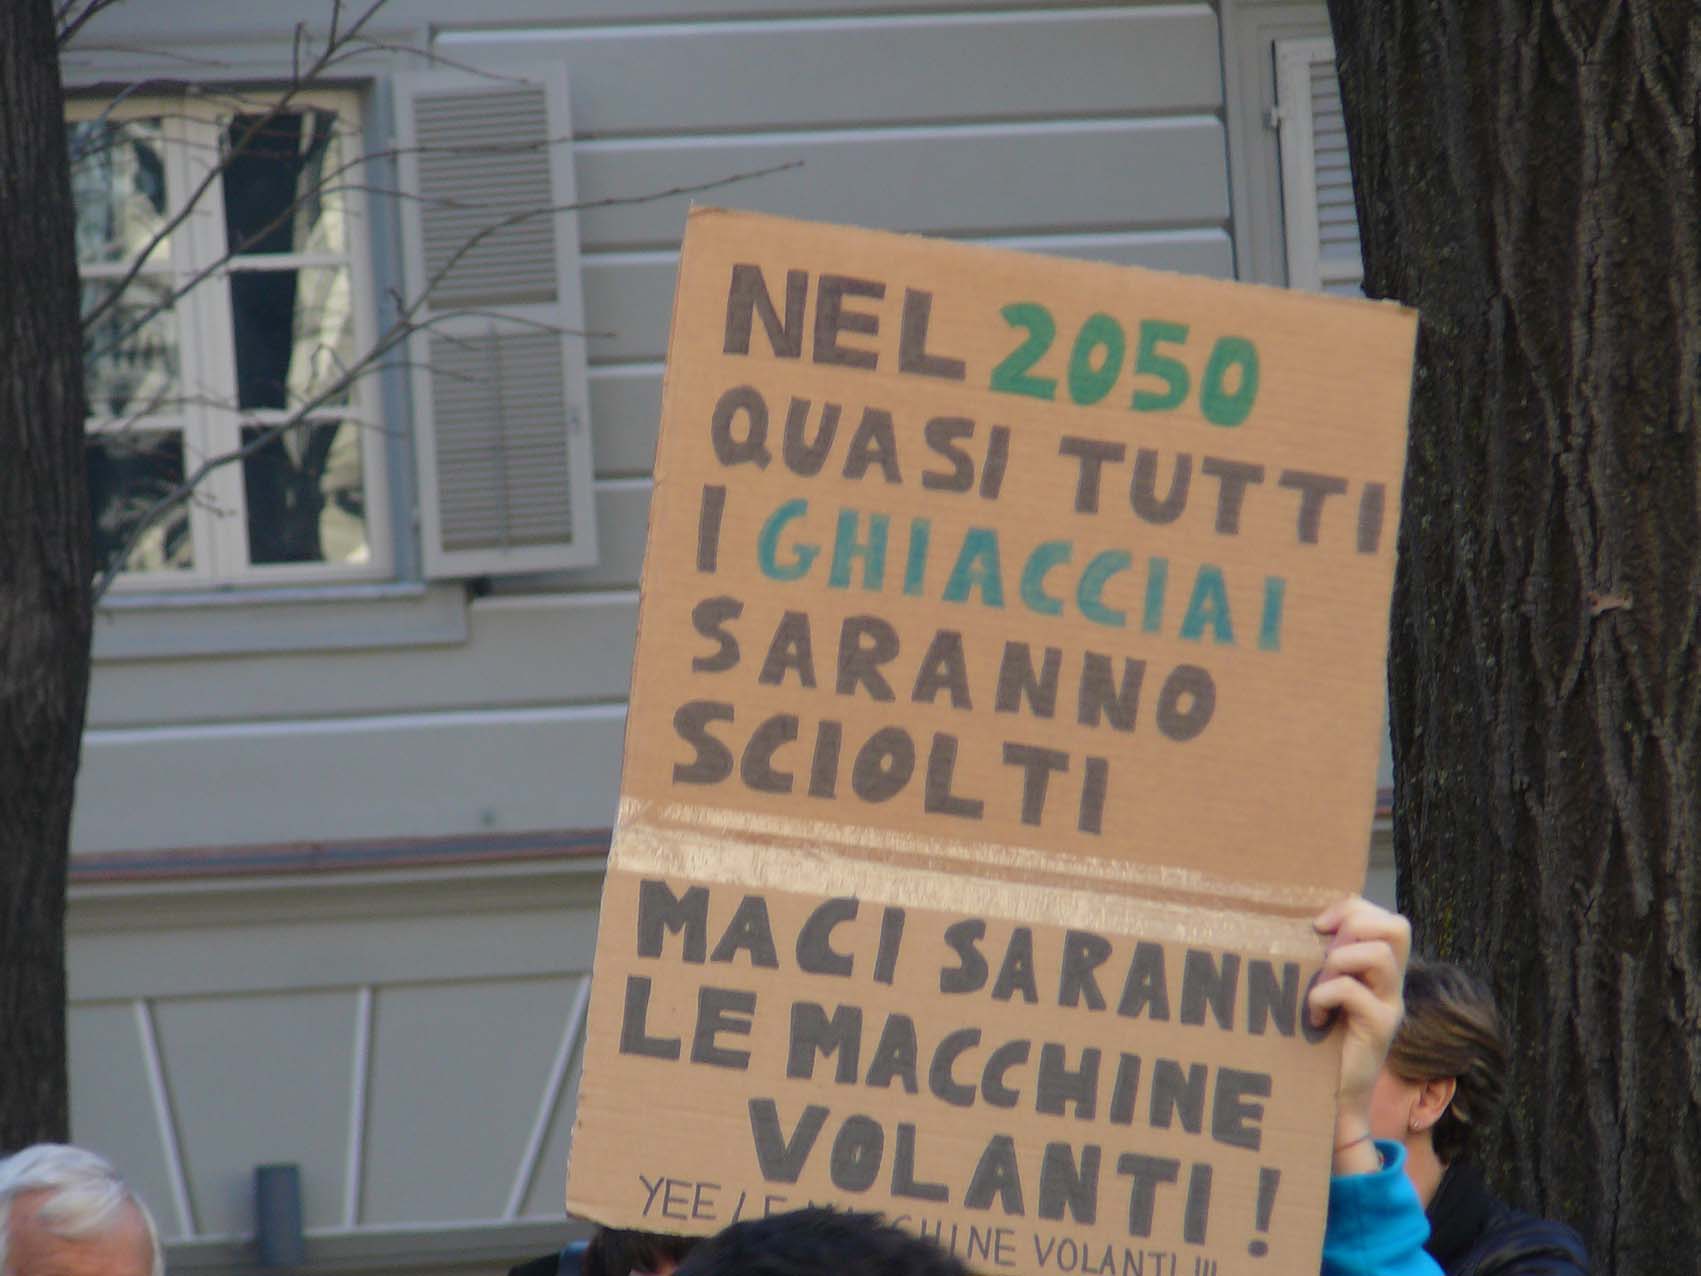 NEL 2050
QUASI TUTTI
I GHIACCIAI
SARANNO
SCIOLTI
MA CI SARANNO
LE MACCHINE
VOLANTI!
YEE VOLANTI!!!